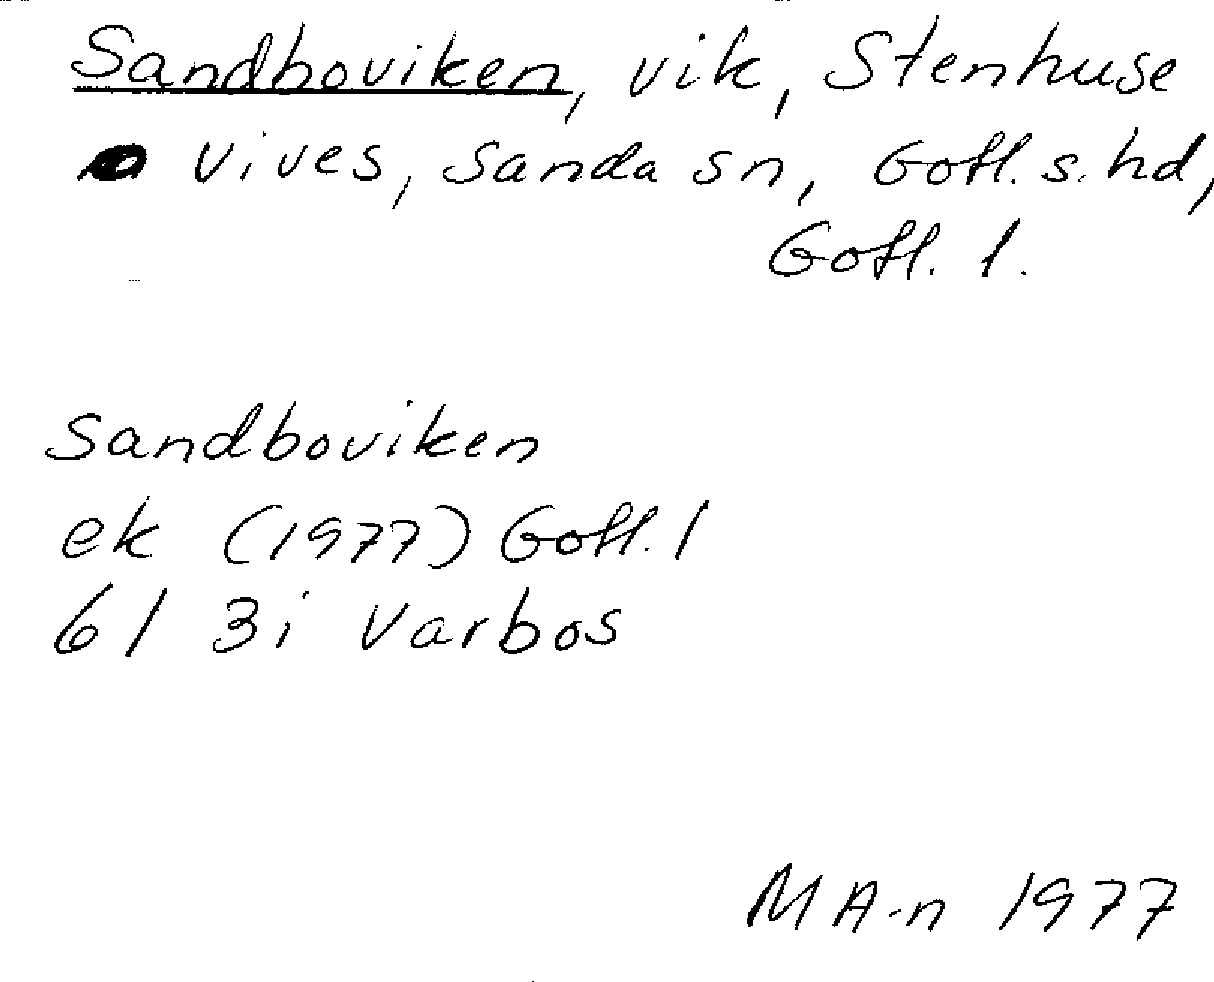 Sandboviken, vik, Stenhuse
Vives, Sanda sn, Gotl. s. hd,
Gotl. l.
Sandboviken
ek (1977) Gotl. l
6I 3i Varbos
M A-n 1977